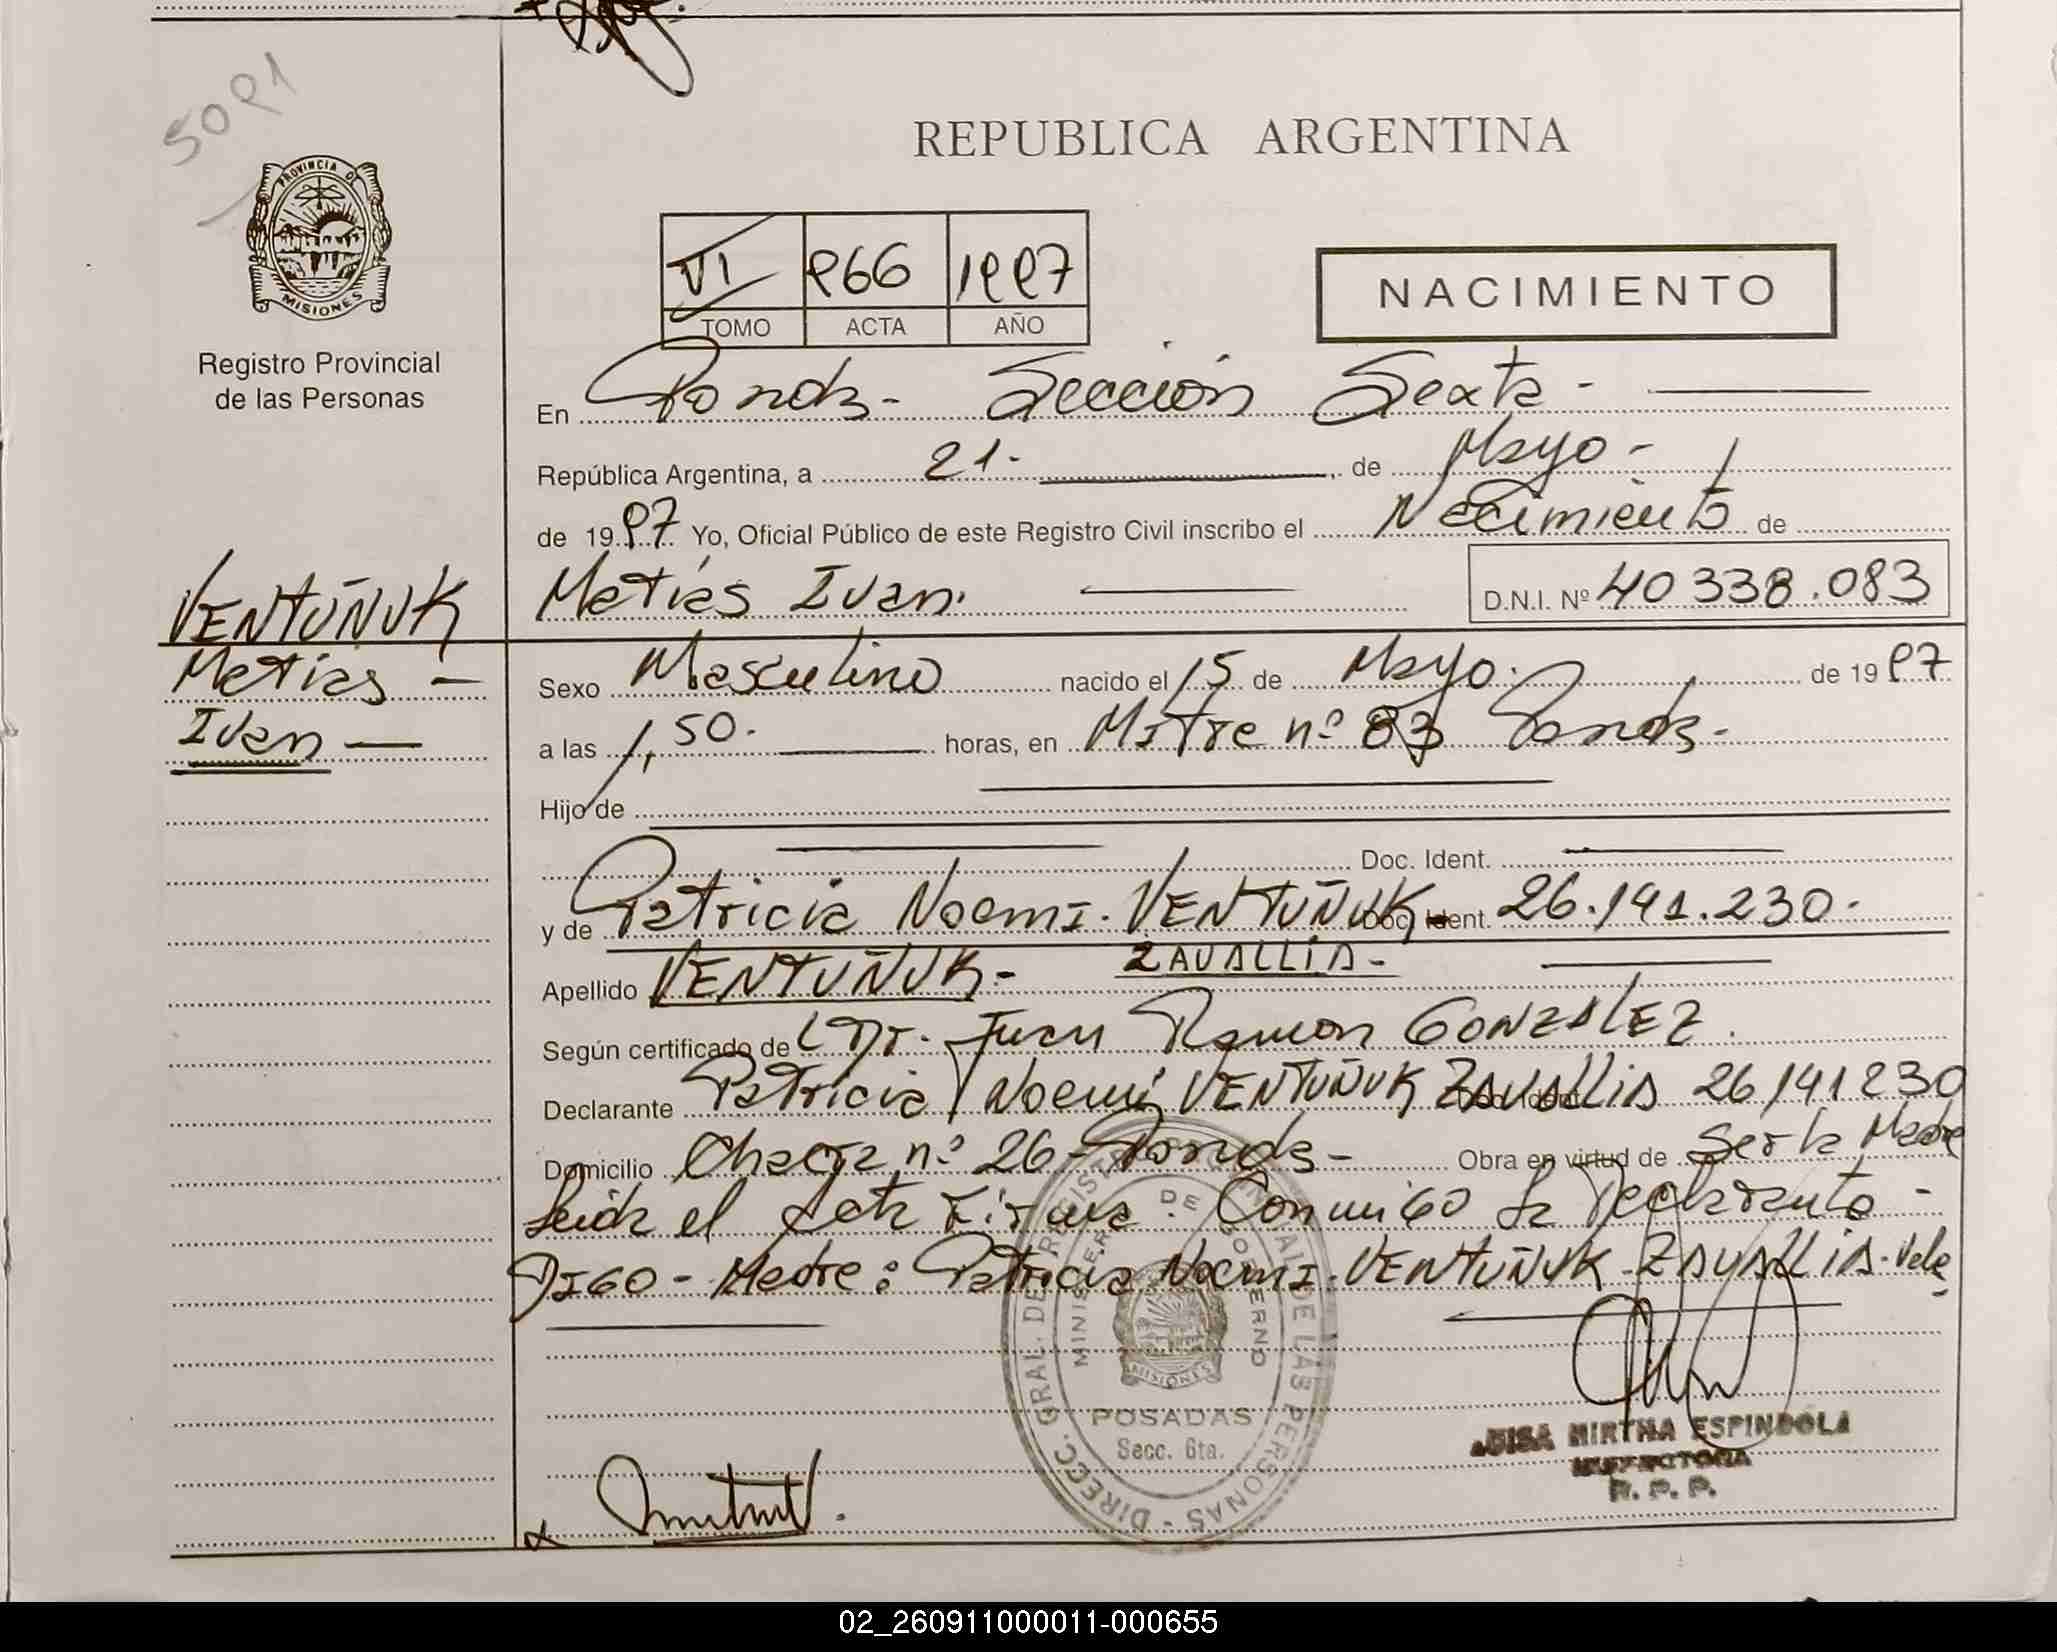 5091
REPUBLICA ARGENTINA
PROVINCIA DE
MISIONES
VI 966 1997
TOMO ACTA AÑO
NACIMIENTO
Registro Provincial
de las Personas
En Posadas - Sección Sexta -
República Argentina, a 21 - , de Mayo -
de 1997 Yo, Oficial Público de este Registro Civil inscribo el Nacimiento de
VENTUÑUK
Matías Ivan. D.N.I. Nº 40 338.083
Matías -
Ivan -
Sexo Masculino nacido el 15 de Mayo. de 1997
a las 1,50. horas, en Mitre nº 83 Posadas -
Hijo de
Doc. Ident.
y de Patricia Noemi. VENTUÑUK - Doc. Ident. 26.141.230 -
Apellido VENTUÑUK - ZAVALLIA -
Según certificado de Dr. Juan Ramon GONZALEZ.
Declarante Patricia Noemí VENTUÑUK ZAVALLIA Doc. Ident. 26 141 230
Domicilio Chacra nº 26 - Posadas - Obra en virtud de Ser la Madre
Leida el Acta Firma Conmigo la Declarante -
DIGO - Madre: Patricia Noemi. VENTUÑUK - ZAVALLIA. Vale
DIRECC. GRAL. DE REGISTRO PROVINCIAL DE LAS PERSONAS
MINISTERIO DE GOBIERNO
MISIONES
POSADAS
Secc. 6ta.
LUISA MIRTHA ESPINDOLA
R. P. P.
02_260911000011-000655